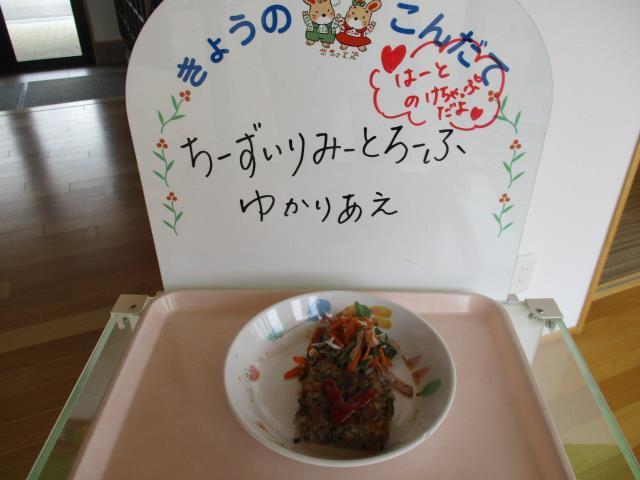 きょうの こんだて
はーと
の けちゃっぷ
だよ
ちーずいりみーとろーふ
ゆかりあえ